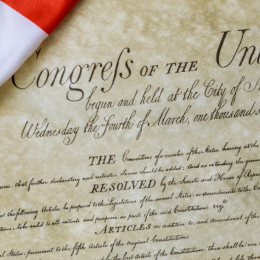 Congreſs OF THE Uni
begun and held at the City of N
Wednesday the Fourth of March, one thousand s
THE Conventions of a number of the States, having at the
that further declaratory and restrictive clauses should be added: And as extending the ground
RESOLVED by the Senate and House of Repre
the following Articles be proposed to the Legislatures of the several States, as amendments to the
to be valid to all intents and purposes, as part of the said Constitution; viz
ARTICLES in addition to, and Amendment of the
several States, pursuant to the fifth Article of the original Constitution.
first Article of the Constitution, there shall be one